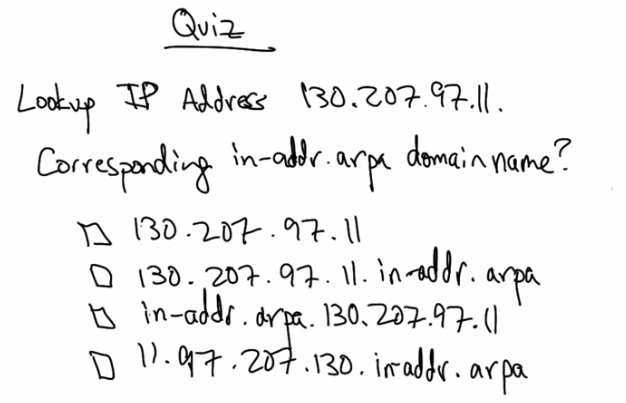 Quiz
Lookup IP Address 130.207.97.11.
Corresponding in-addr.arpa domain name?
130.207.97.11
130.207.97.11.in-addr.arpa
in-addr.arpa.130.207.97.11
11.97.207.130.in-addr.arpa